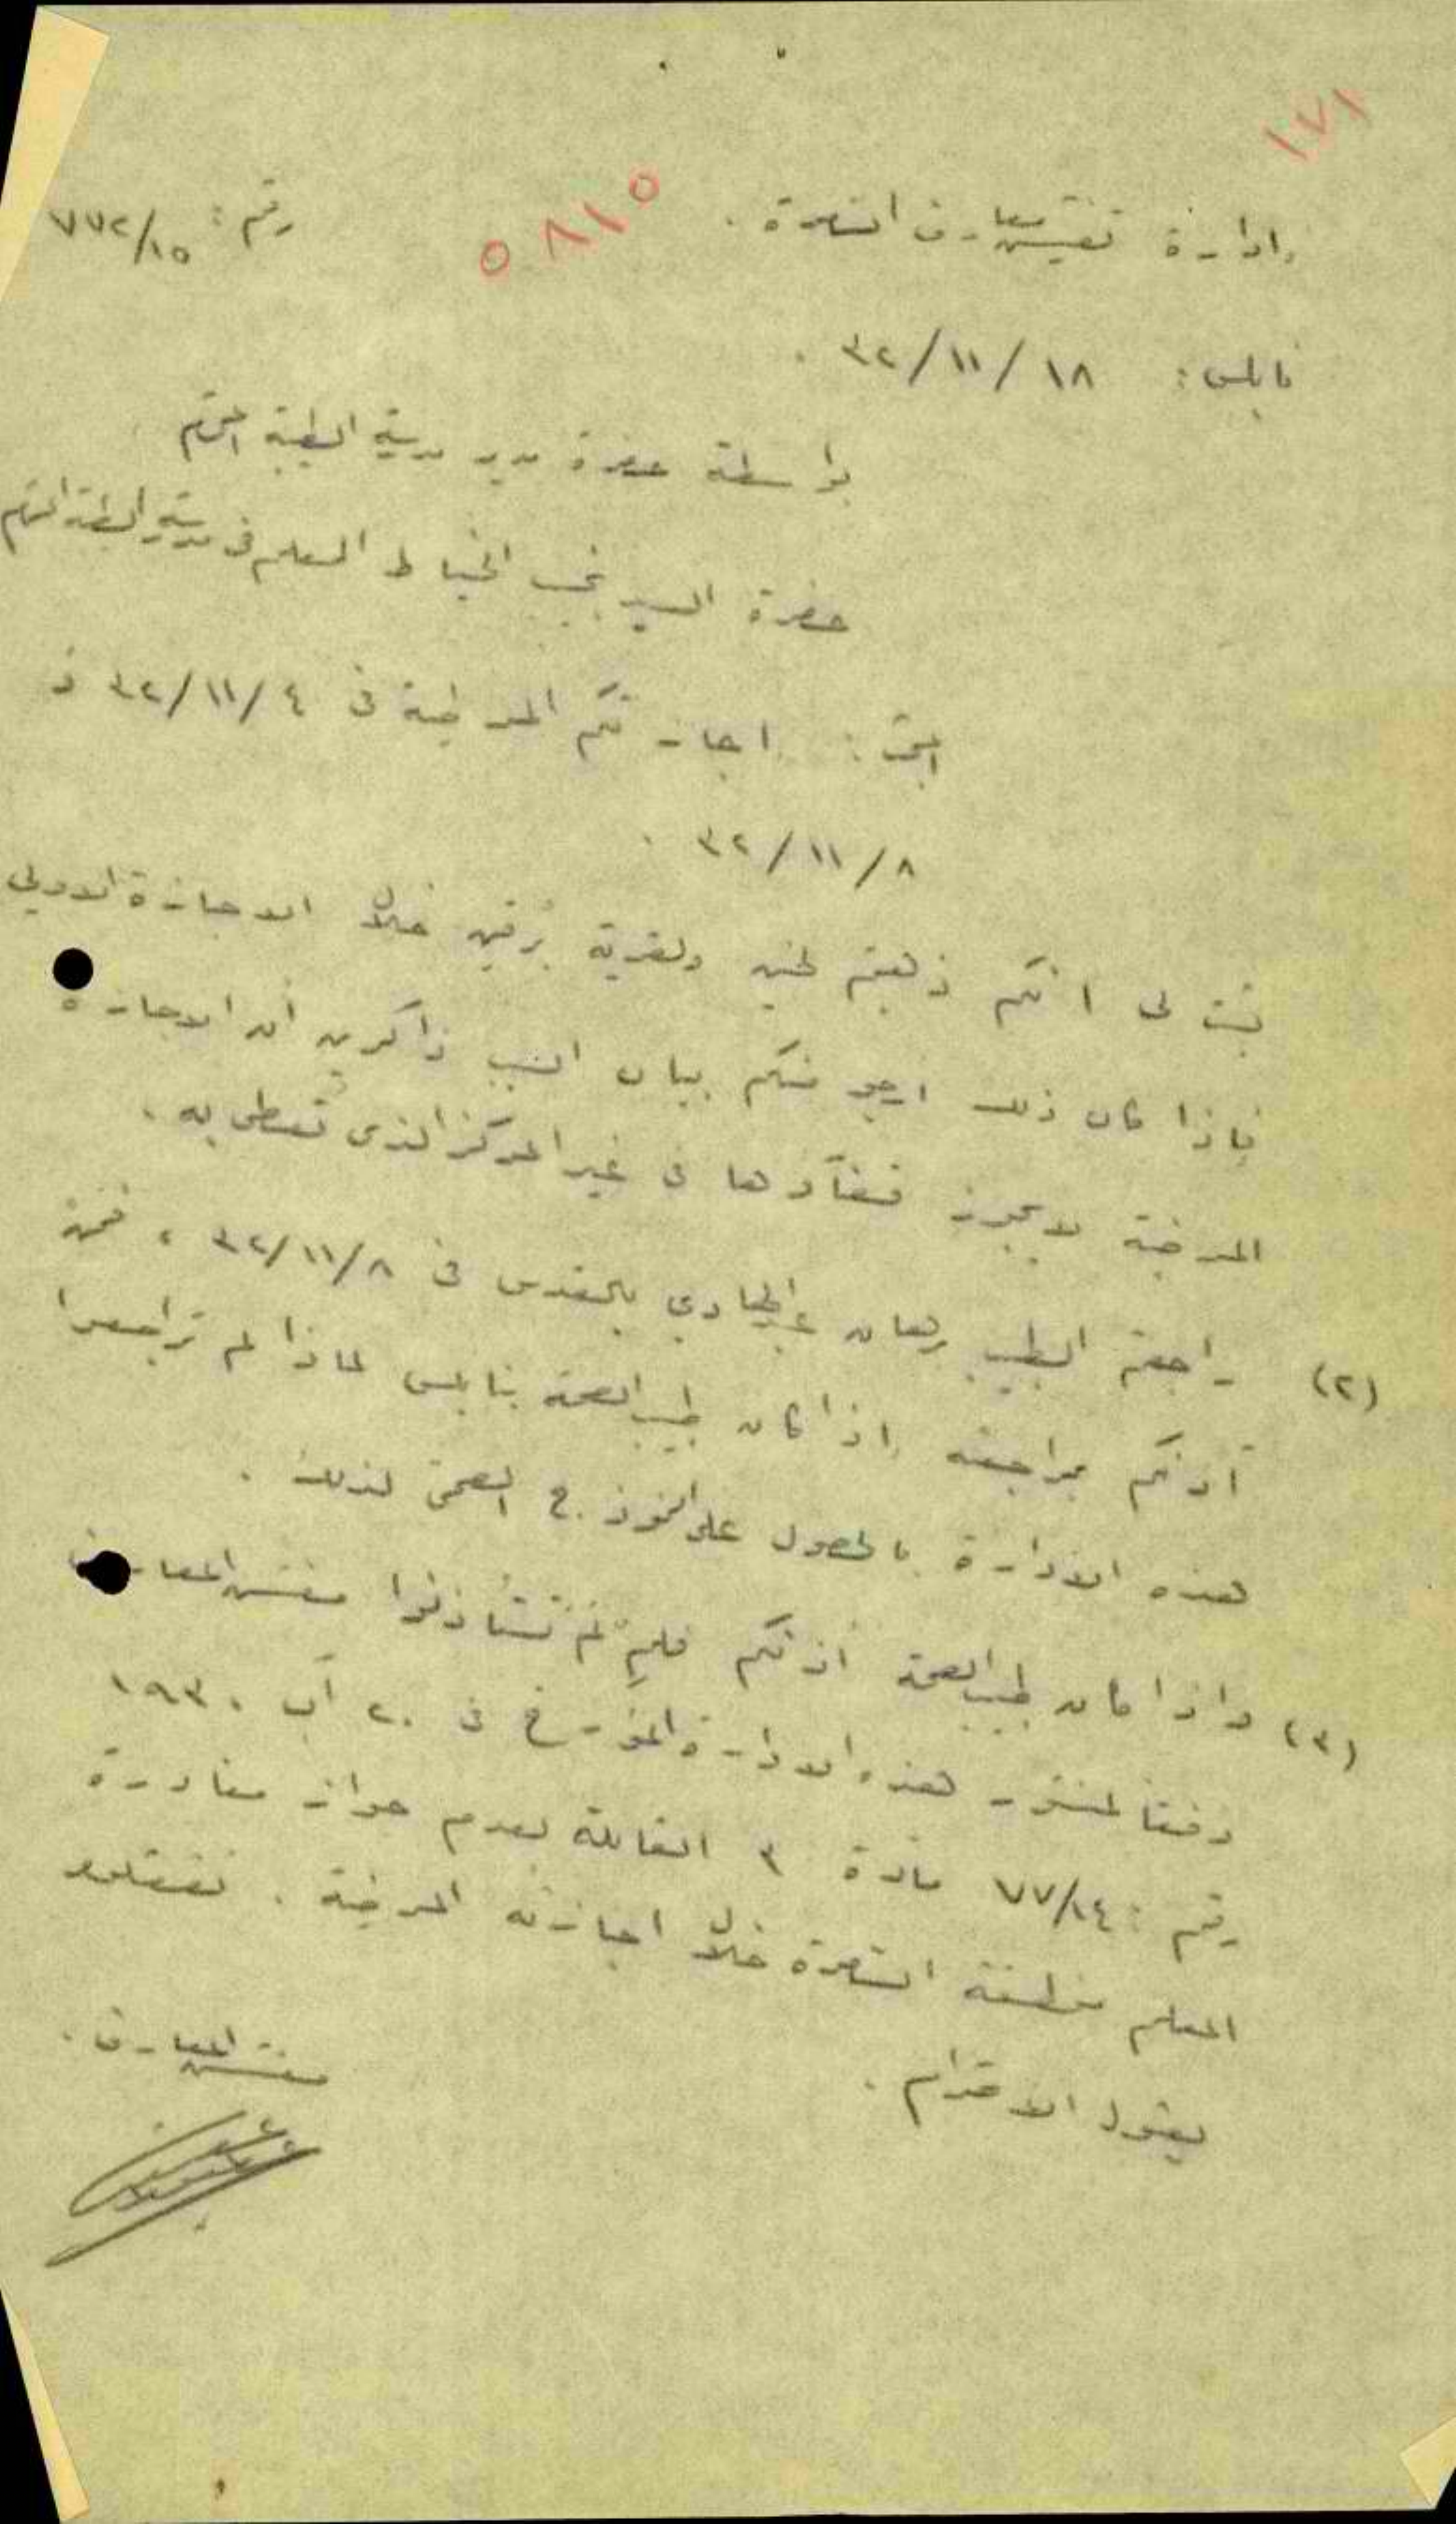 ١٧١
ادارة تفتيش معارف السامرة . ٥٨١٥ رقم : ٧٧٢/١٥
نابلس : ١٨ / ١١ / ٣٢ .
بواسطة حضرة مدير مدرسة الطيبة المحترم
حضرة السيد نجيب الخياط المعلم في مدرسة الطيبة المحترم
البحث : اجازتكم المرضية في ٤ /١١/ ٣٢ و
٨ / ١١ / ٣٢ .
ثبت لي انكم ذهبتم لجنين ولقرية برقين خلال الاجازة الاولى
فاذا كان ذلك ارجو منكم بيان السبب ذاكرين أن الاجازة
المرضية لا يجوز قضاؤها في غير المركز الذي تعطى به .
(٢) راجعتم الطبيب بالقدس في ٨/١١/٣٢ ، فمن
آذنكم بمراجعته اذا كان طبيب الصحة بنابلس لماذا لم تراجعوا
هذه الادارة بالحصول على النموذج الصحي لذلك .
(٣) واذا كان طبيب الصحة آذنكم فلم لم تستأذنوا مفتش المعارف
وفقا لمنشور هذه الادارة المؤرخ في ٢٠ آب ١٩٣٠
رقم : ٧٧/١٤ مادة ٣ القائلة بعدم جواز مغادرة
المعلم منطقة السامرة خلال اجازته المرضية . تفضلوا
بقبول الاحترام .
مفتش المعارف .